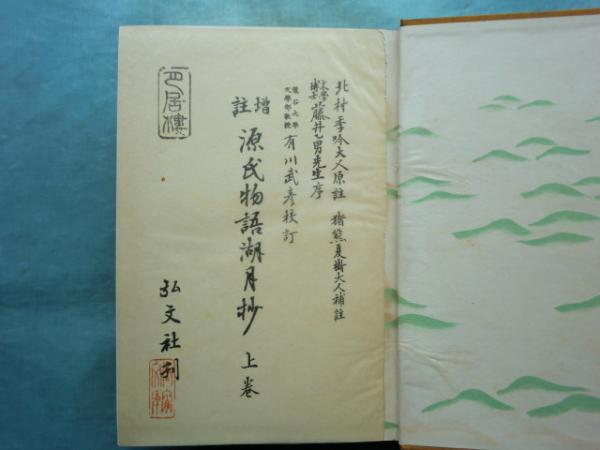 北村季吟大人原註 猪熊夏樹大人補註
文學博士 藤井乙男先生序
龍谷大學文學部敎授 有川武彦校訂
增註 源氏物語湖月抄 上巻
弘文社刊